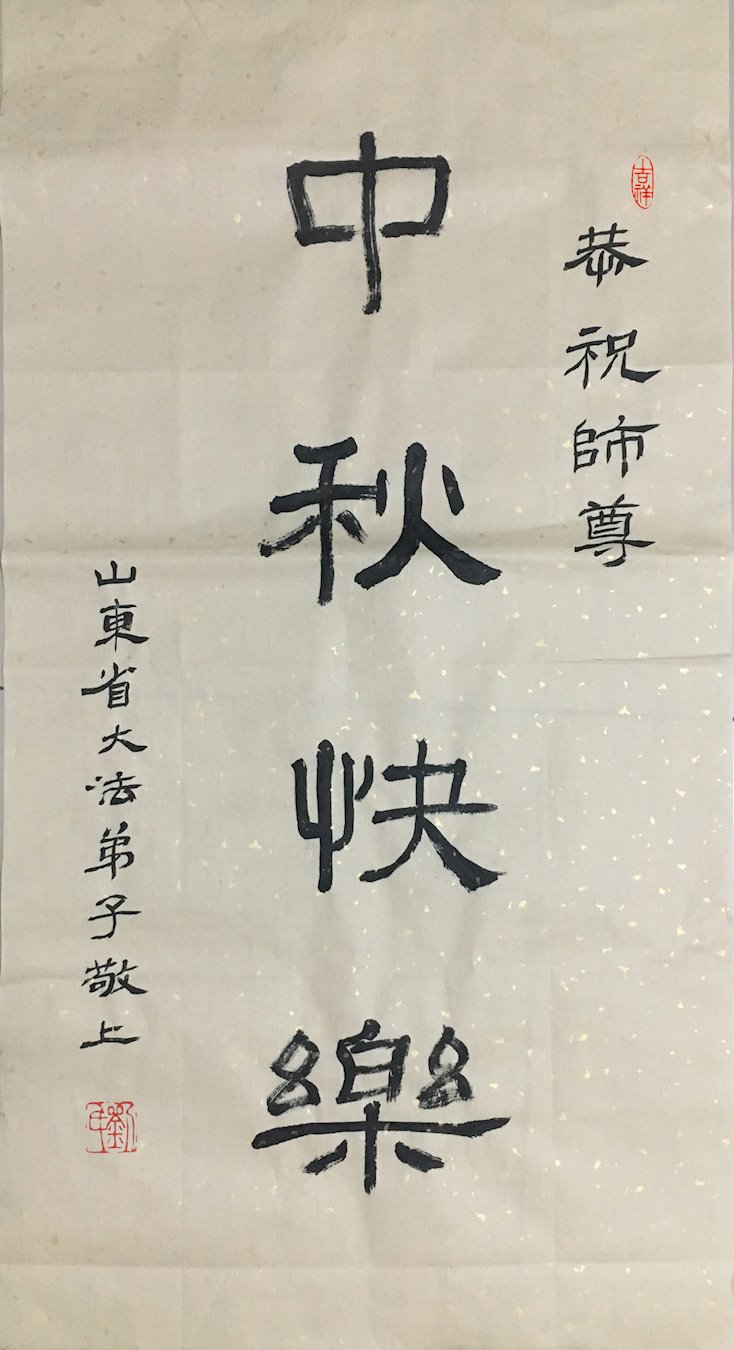 吉祥
恭祝師尊
中秋快樂
山東省大法弟子敬上